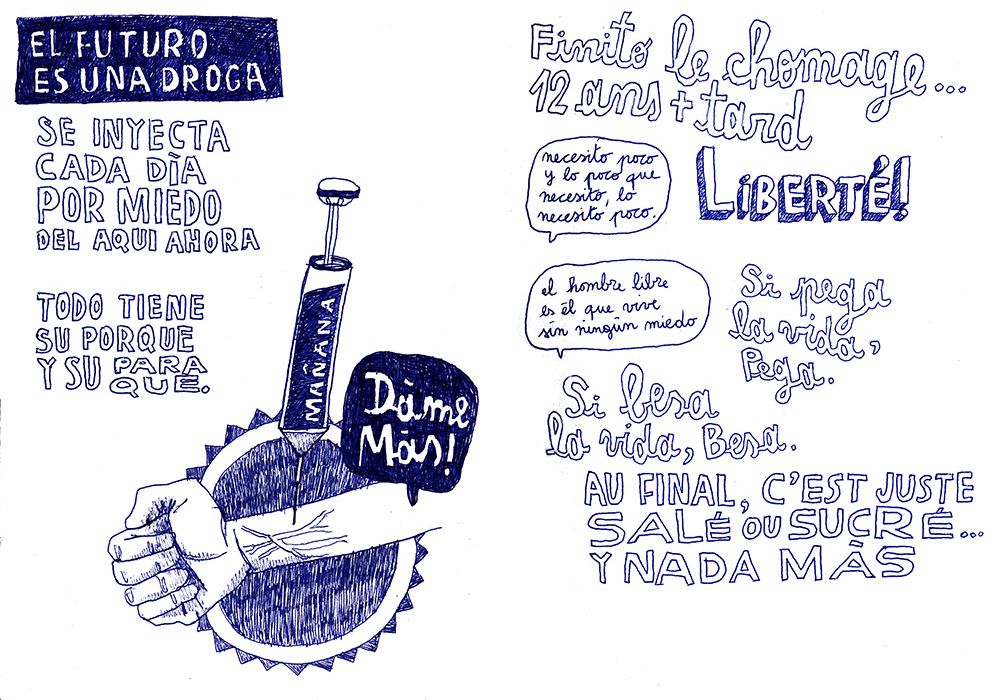 EL FUTURO
ES UNA DROGA
SE INYECTA
CADA DÌA
POR MIEDO
DEL AQUI AHORA
TODO TIENE
SU PORQUE
Y SU PARA
QUE.
MAÑÂNA
Dàme
Màs!
Finito le chomage...
12 ans + tard
LIBERTÉ!
necesito poco
y lo poco que
necesito, lo
necesito poco.
el hombre libre
es él que vive
sin ningùn miedo
Si pega
la vida,
Pega.
Si besa
la vida, Besa.
AU FINAL, C'EST JUSTE
SALÉ OU SUCRÉ...
Y NADA MÀS